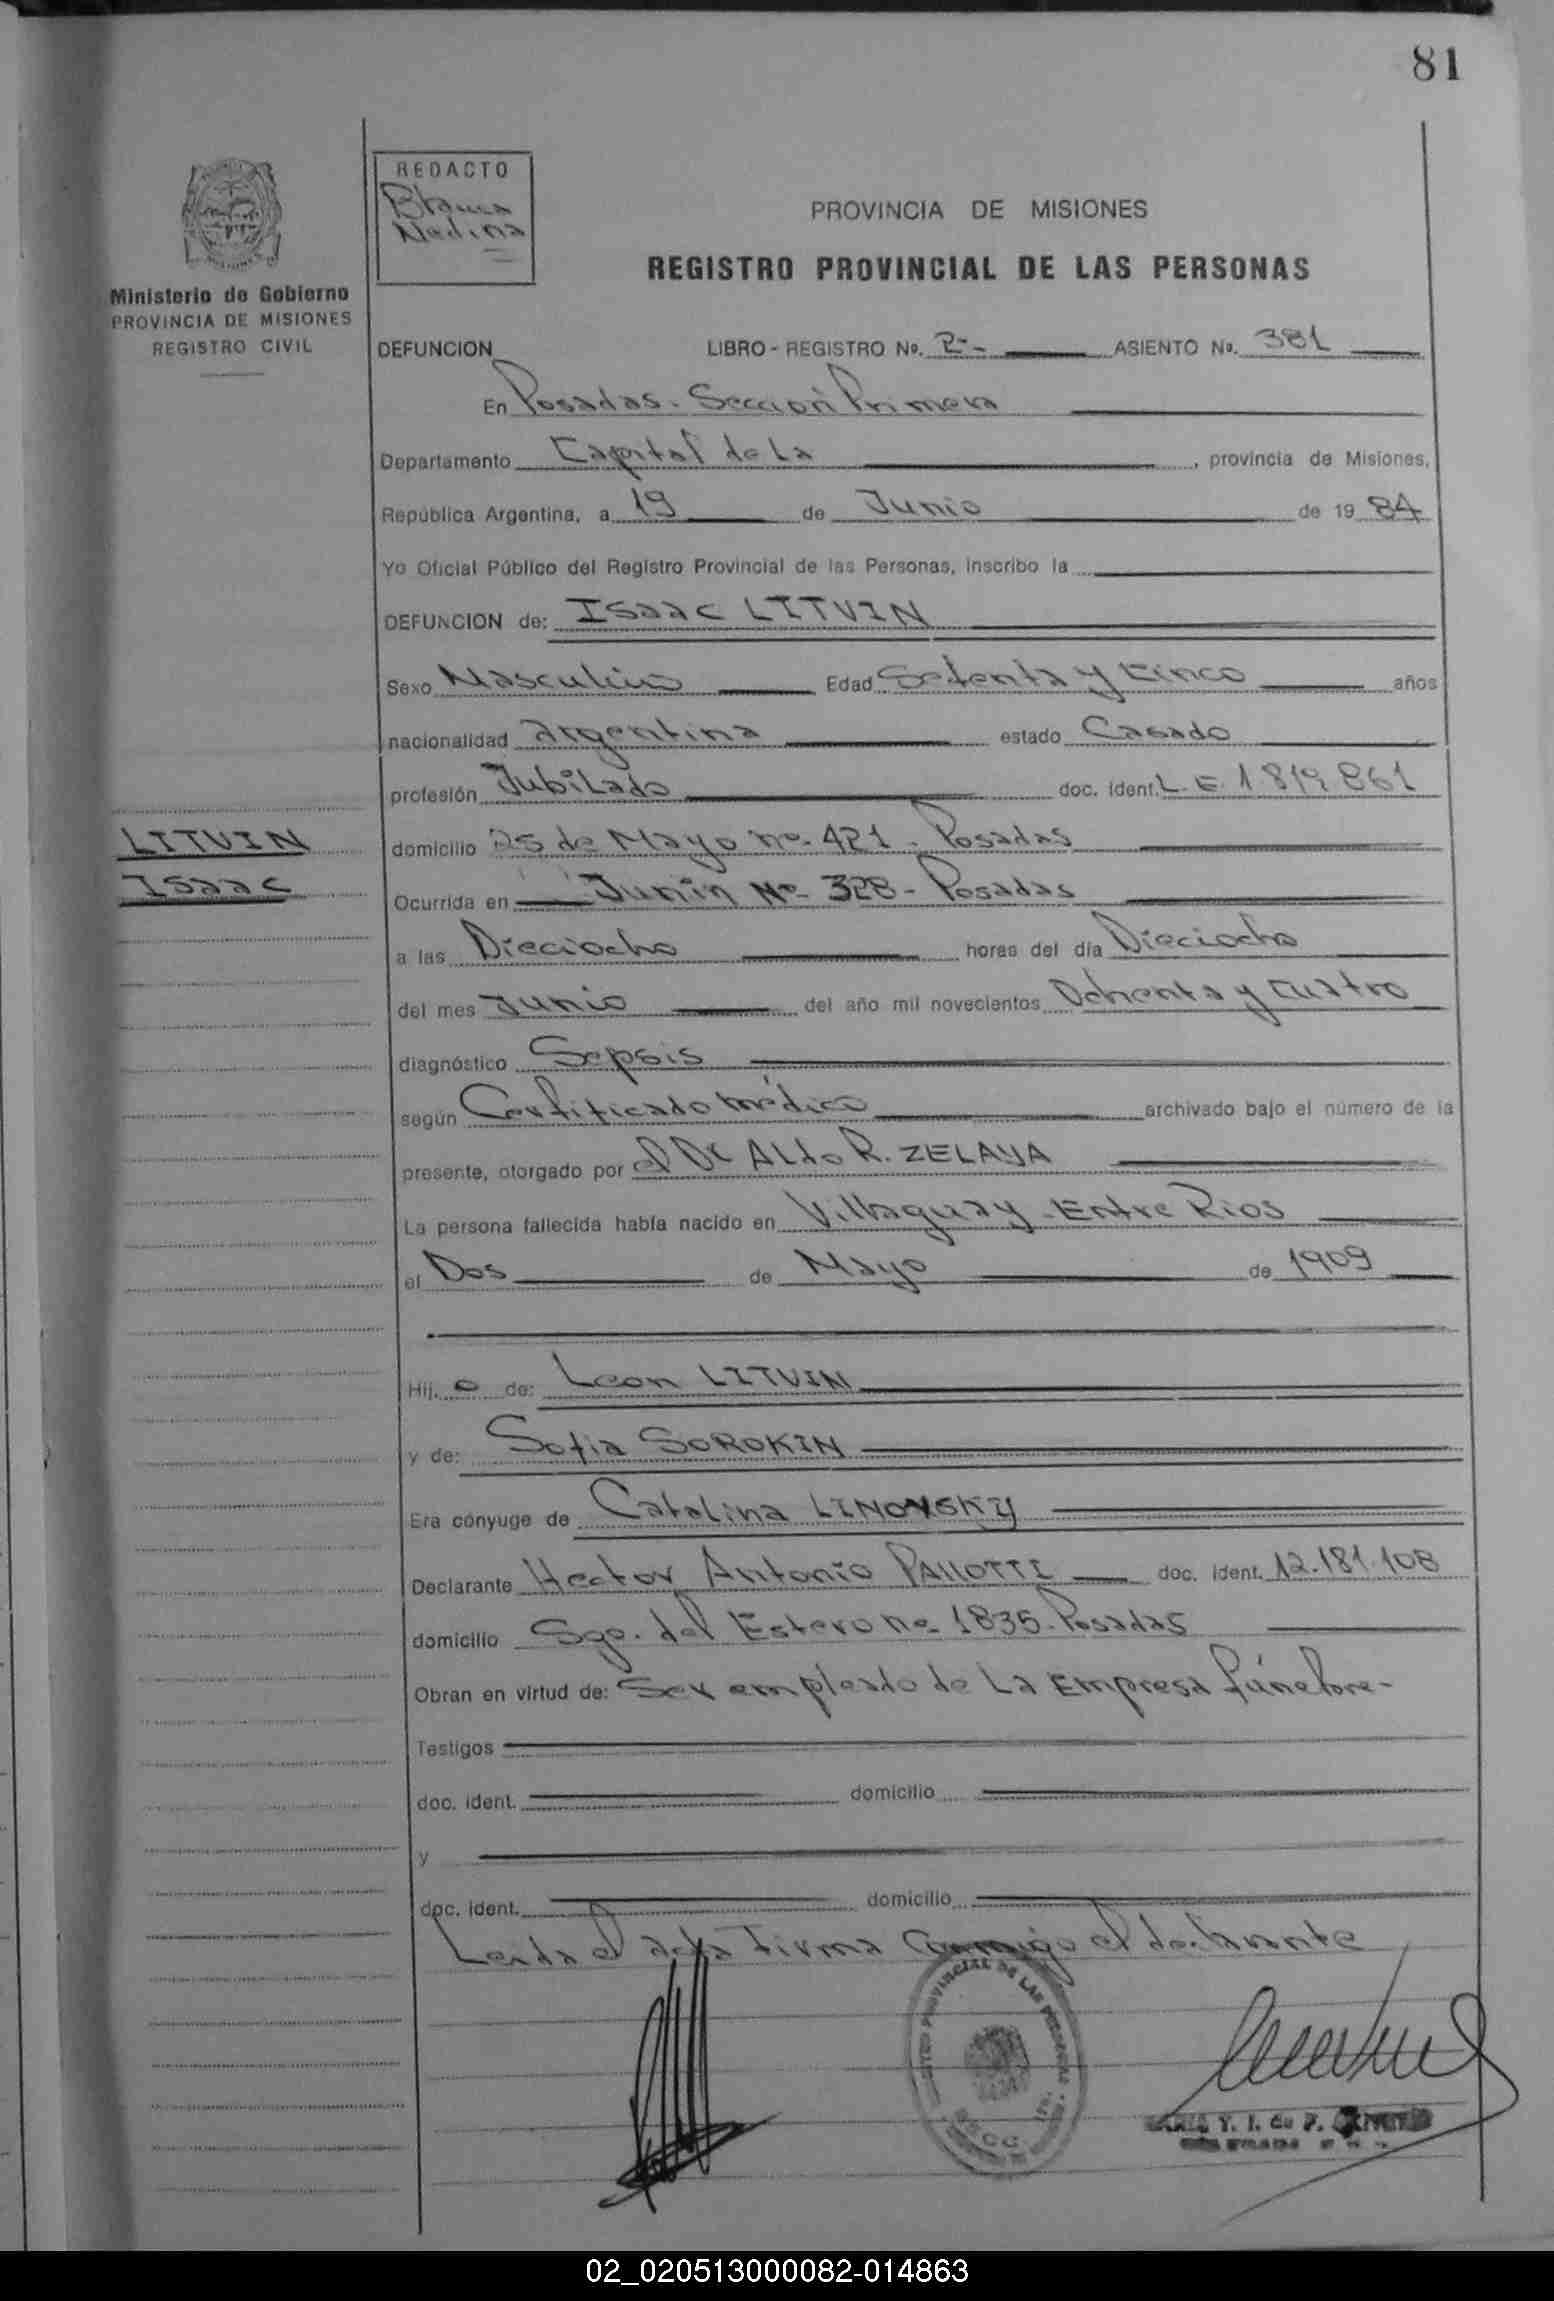 81
REDACTO
Blanca
Medina
PROVINCIA DE MISIONES
REGISTRO PROVINCIAL DE LAS PERSONAS
Ministerio de Gobierno
PROVINCIA DE MISIONES
REGISTRO CIVIL
DEFUNCION LIBRO - REGISTRO No. 2 - ASIENTO No. 381
En Posadas. Sección Primera
Departamento Capital de La , provincia de Misiones,
República Argentina, a 19 de Junio de 1984
Yo Oficial Público del Registro Provincial de las Personas, inscribo la
DEFUNCION de: Isaac LITVIN
Sexo Masculino Edad Setenta y Cinco años
nacionalidad argentina estado Casado
profesión Jubilado doc. ident. L.E. 1.819.861
LITVIN
Isaac
domicilio 25 de Mayo no. 421 - Posadas
Ocurrida en Junín No. 328 - Posadas
a las Dieciocho horas del día Dieciocho
del mes Junio del año mil novecientos Ochenta y Cuatro
diagnóstico Sepsis
según Certificado médico archivado bajo el número de la
presente, otorgado por el Dr Aldo R. ZELAYA
La persona fallecida había nacido en Villaguay - Entre Rios
el Dos de Mayo de 1909
Hij o de: Leon LITVIN
y de: Sofia SOROKIN
Era cónyuge de Catalina LINOVSKY
Declarante Hector Antonio PALLOTTI doc. ident. 12.181.108
domicilio Sgo. del Estero no. 1835. Posadas
Obran en virtud de: Ser empleado de La Empresa fúnebre -
Testigos
doc. ident. domicilio
y
doc. ident. domicilio
Leída el acta Firma Conmigo el declarante
PROVINCIAL DE LAS PERSONAS
Y. I. de P.
02_020513000082-014863